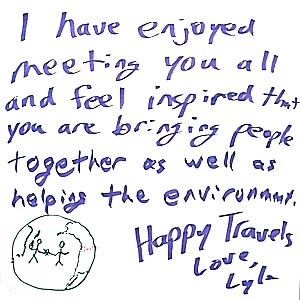 I have enjoyed
meeting you all
and feel inspired that
you are bringing people
together as well as
helping the environmnt.
Happy Travels
Love,
Lyla